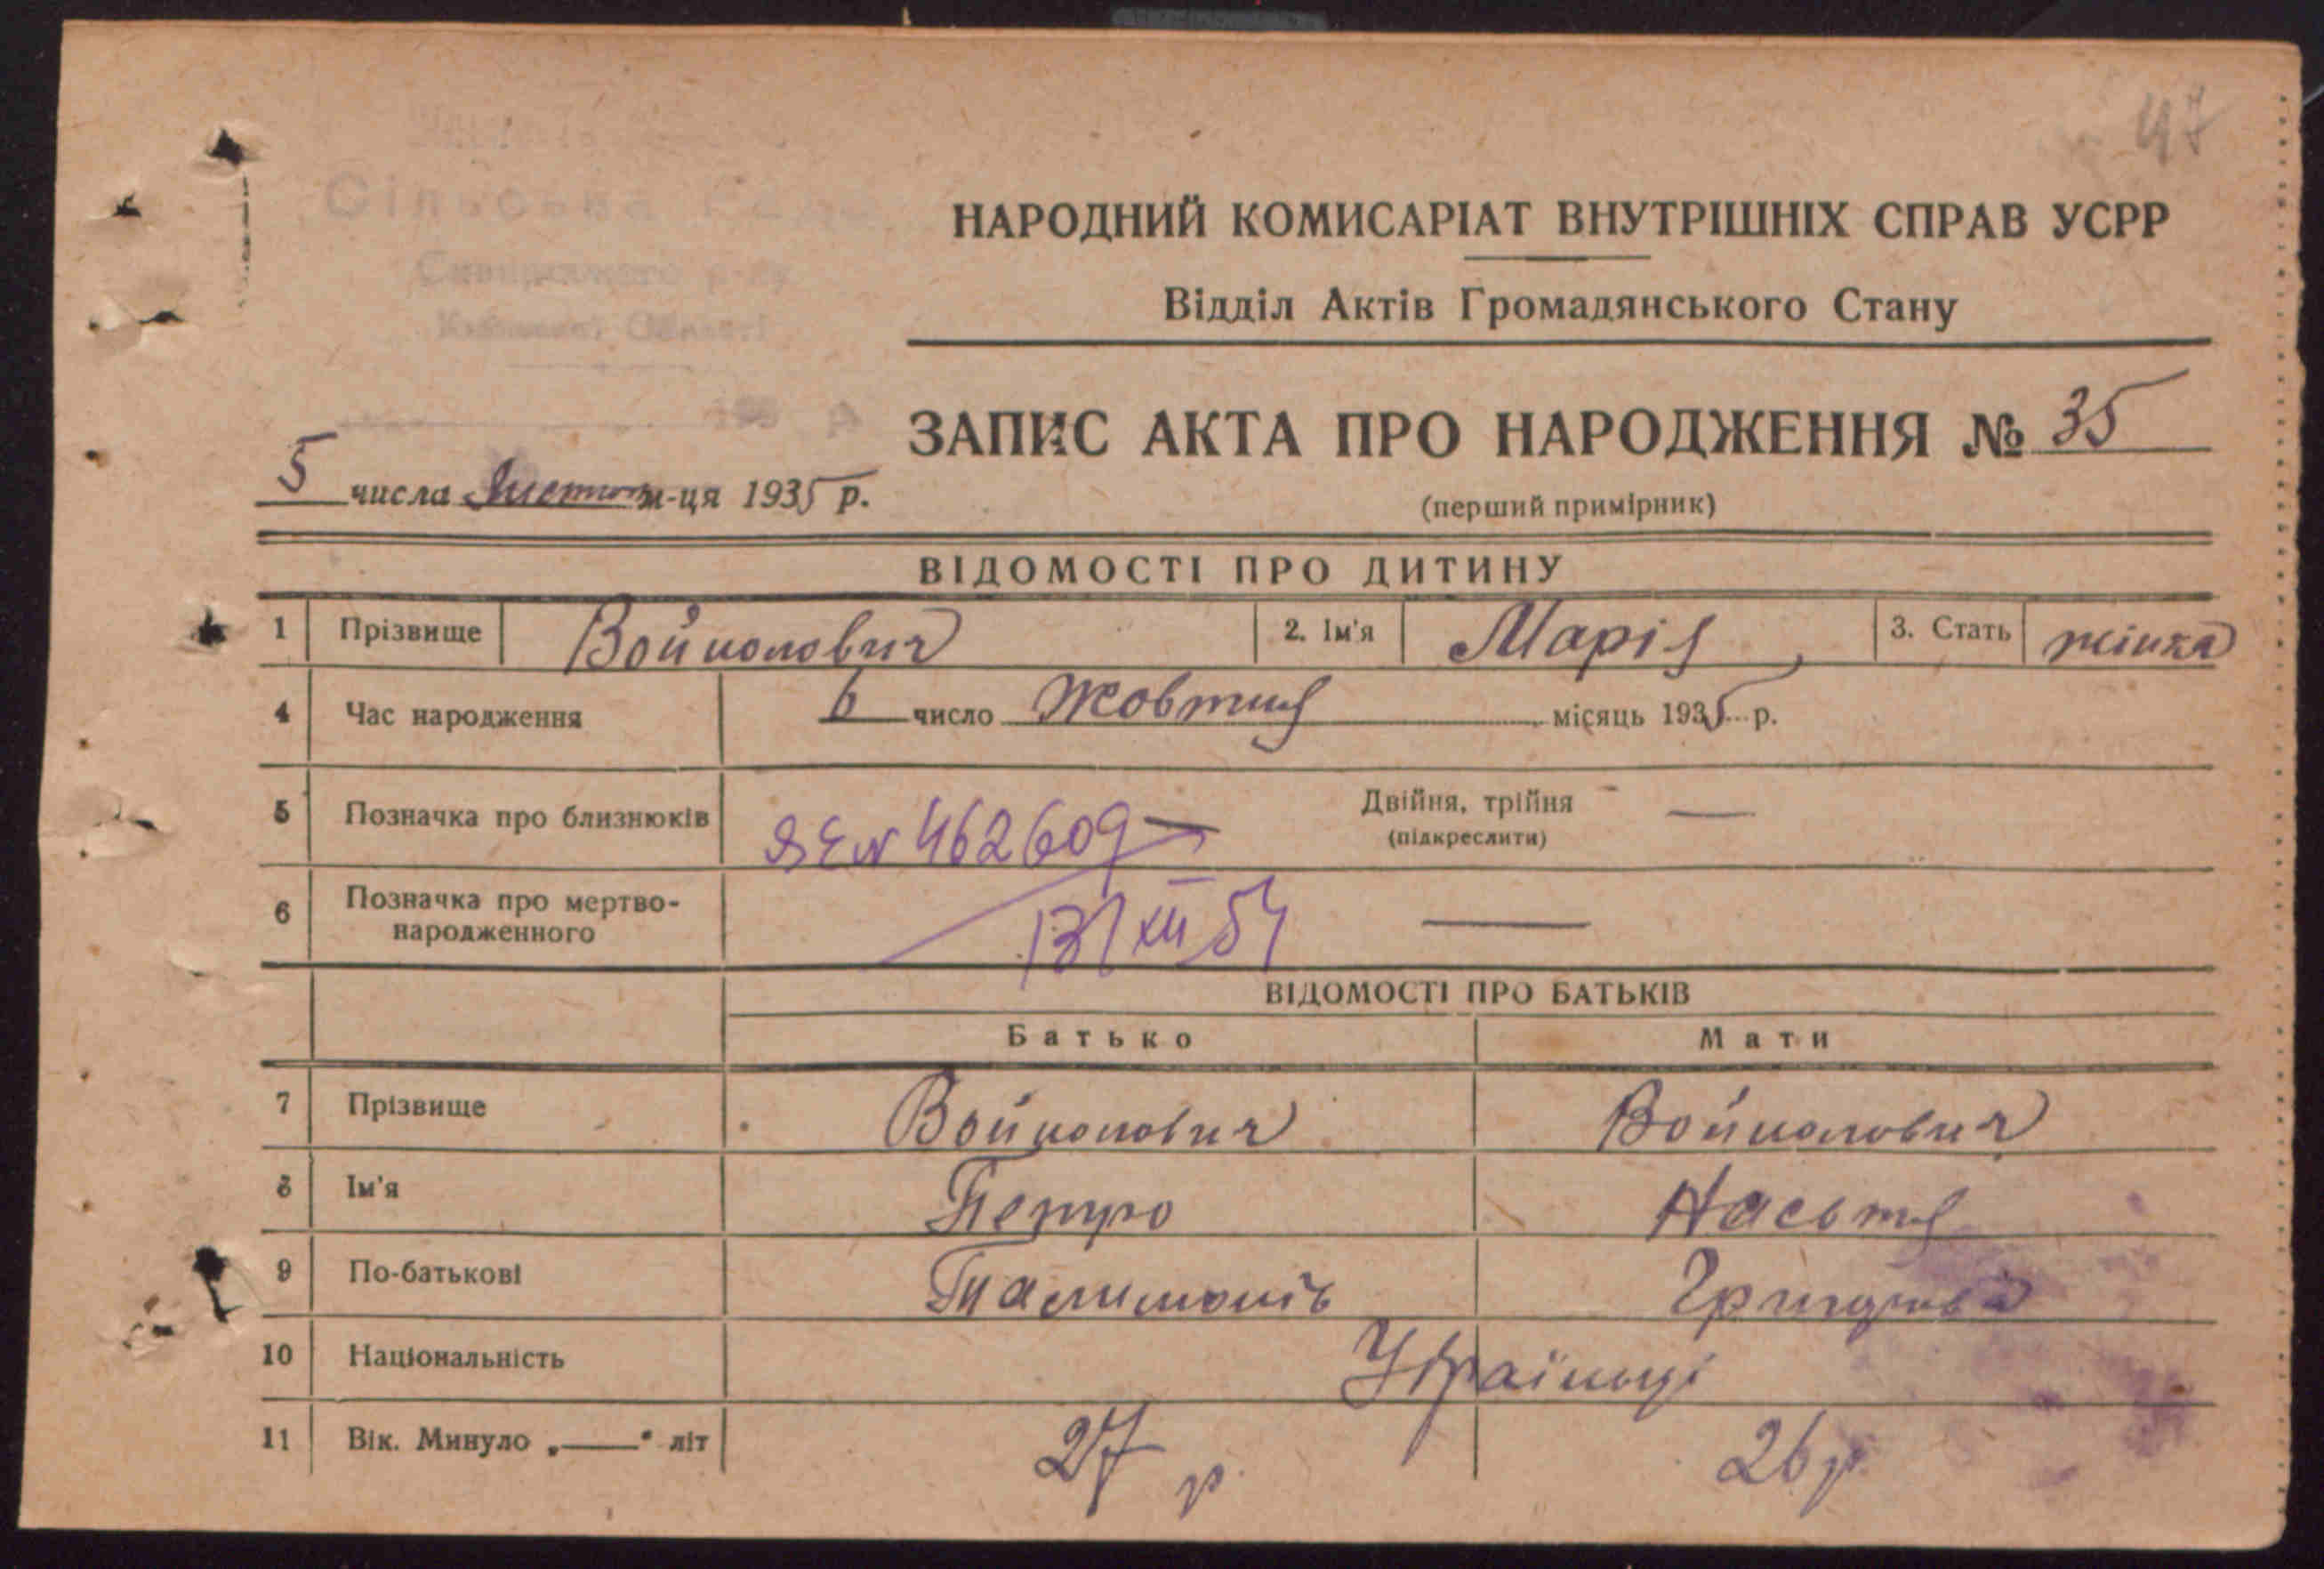 47
Сільська Рада
НАРОДНИЙ КОМИСАРІАТ ВНУТРІШНІХ СПРАВ УСРР
Відділ Актів Громадянського Стану
ЗАПИС АКТА ПРО НАРОДЖЕННЯ № 35
5 числа Листоп м-ця 1935 р.
(перший примірник)
ВІДОМОСТІ ПРО ДИТИНУ
1 Прізвище Войцолович 2. Ім'я Марія 3. Стать жінка
4 Час народження 6 число Жовтня місяць 1935 р.
5 Позначка про близнюків ЯЕ № 462609 Двійня, трійня —
(підкреслити)
6 Позначка про мертво-
народженного 31 XII 54 —
ВІДОМОСТІ ПРО БАТЬКІВ
Батько Мати
7 Прізвище Войцолович Войцолович
8 Ім'я Петро Настья
9 По-батькові
10 Національність Українці
11 Вік. Минуло „——“ літ 27 р. 26 р.